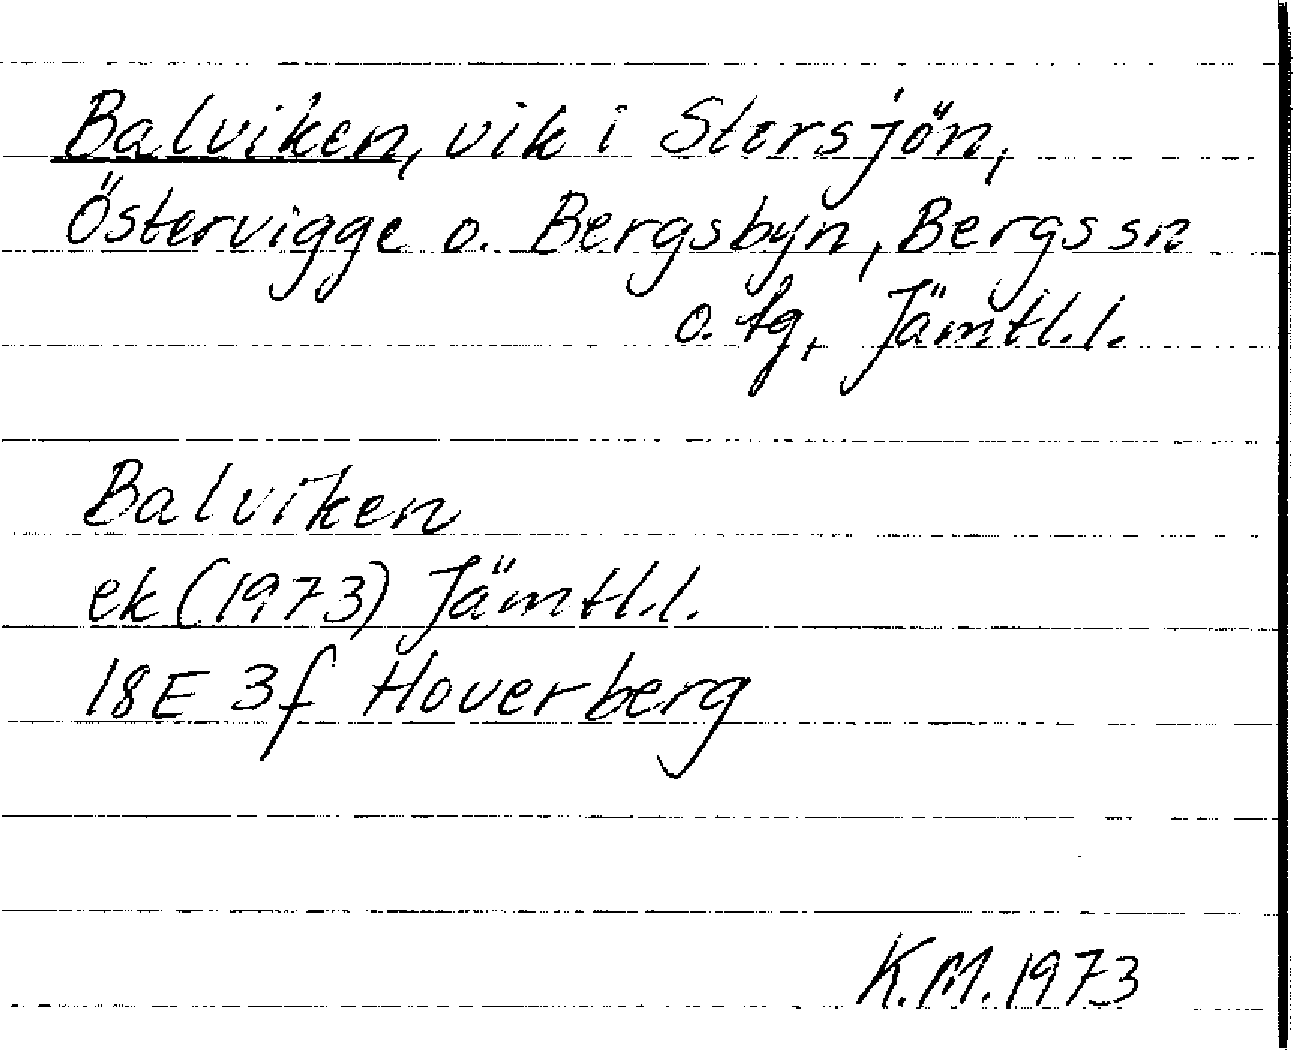 Balviken, vik i Storsjön,
Östervigge o. Bergsbyn, Bergs sn
o. tg, Jämtl.l.
Balviken
ek (1973) Jämtl.l.
18E 3f Hoverberg
K.M. 1973